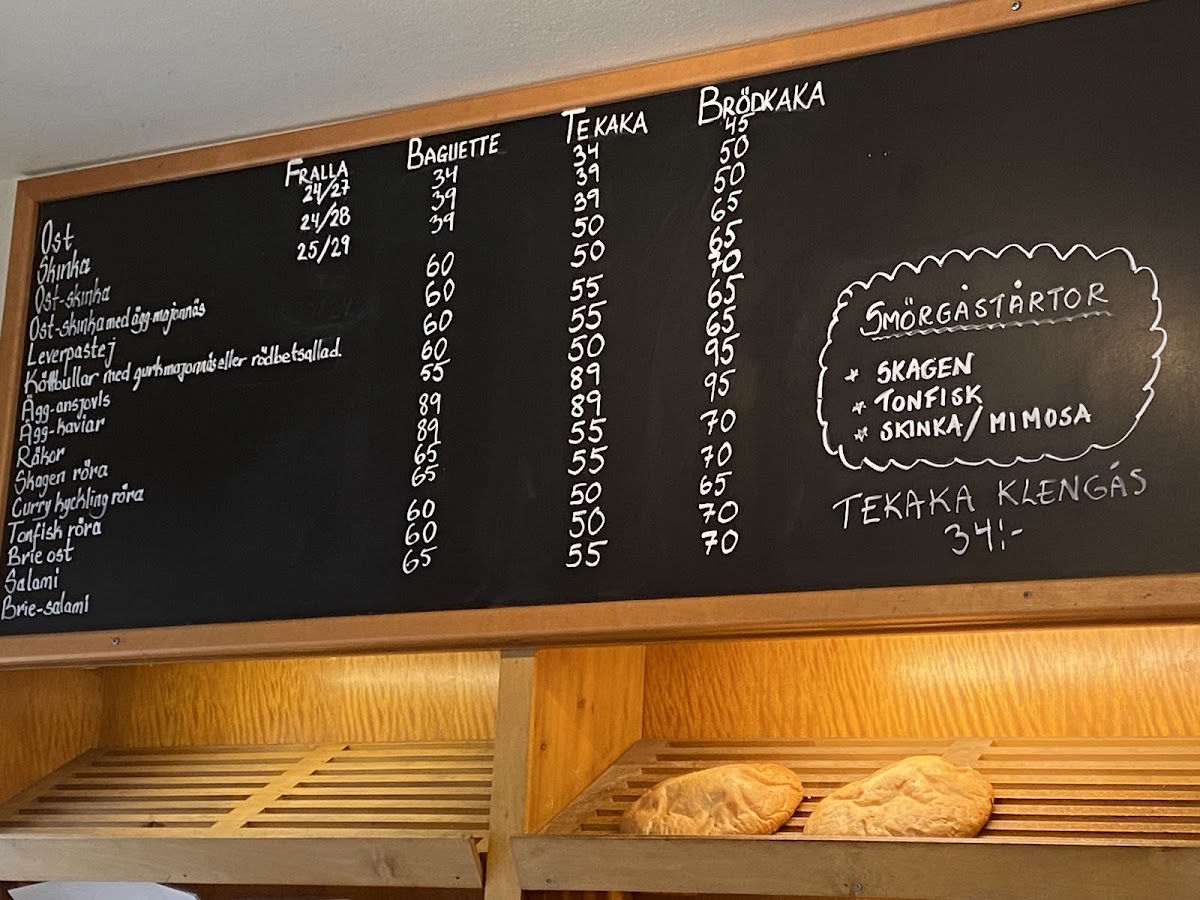 FRALLA BAGUETTE TEKAKA BRÖDKAKA
Ost 24/27 34 34 45
Skinka 24/28 39 39 50
Ost-skinka 25/29 39 39 50
Ost-skinka med ägg-majonnäs 60 50 65
Leverpastej 60 50 65
Köttbullar med gurkmajonnäs eller rödbetsallad. 60 55 70
Ägg-ansjovis 60 55 65
Ägg-kaviar 55 50 65
Räkor 89 89 95
Skagen röra 89 89 95
Curry kyckling röra 65 55 70
Tonfisk röra 65 55 70
Brie ost 60 50 65
Salami 60 50 70
Brie-salami 65 55 70
SMÖRGÅSTÅRTOR
* SKAGEN
* TONFISK
* SKINKA/MIMOSA
TEKAKA KLENGÅS
34:-